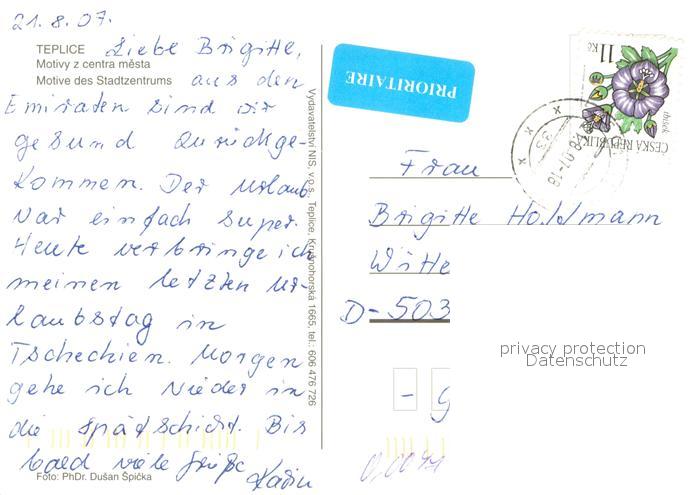 21.8.07.
TEPLICE
Motivy z centra města
Motive des Stadtzentrums
Liebe Brigitte,
aus den
Emiraten sind wir
gesund zurückge-
kommen. Der Urlaub
war einfach super.
Heute verbringe ich
meinen letzten Ur-
laubstag in
Tschechien. Morgen
gehe ich wieder in
die Spätschicht. Bis
bald viele Grüße
Foto: PhDr. Dušan Špička
Vydavatelství NIS, v.o.s., Teplice, Krušnohorská 1665, tel.: 606 476 726
PRIORITAIRE
11 Kč
ibišek
ČESKÁ REPUBLIKA
Frau
Brigitte Holdmann
Witte
D-503
privacy protection
Datenschutz
- g